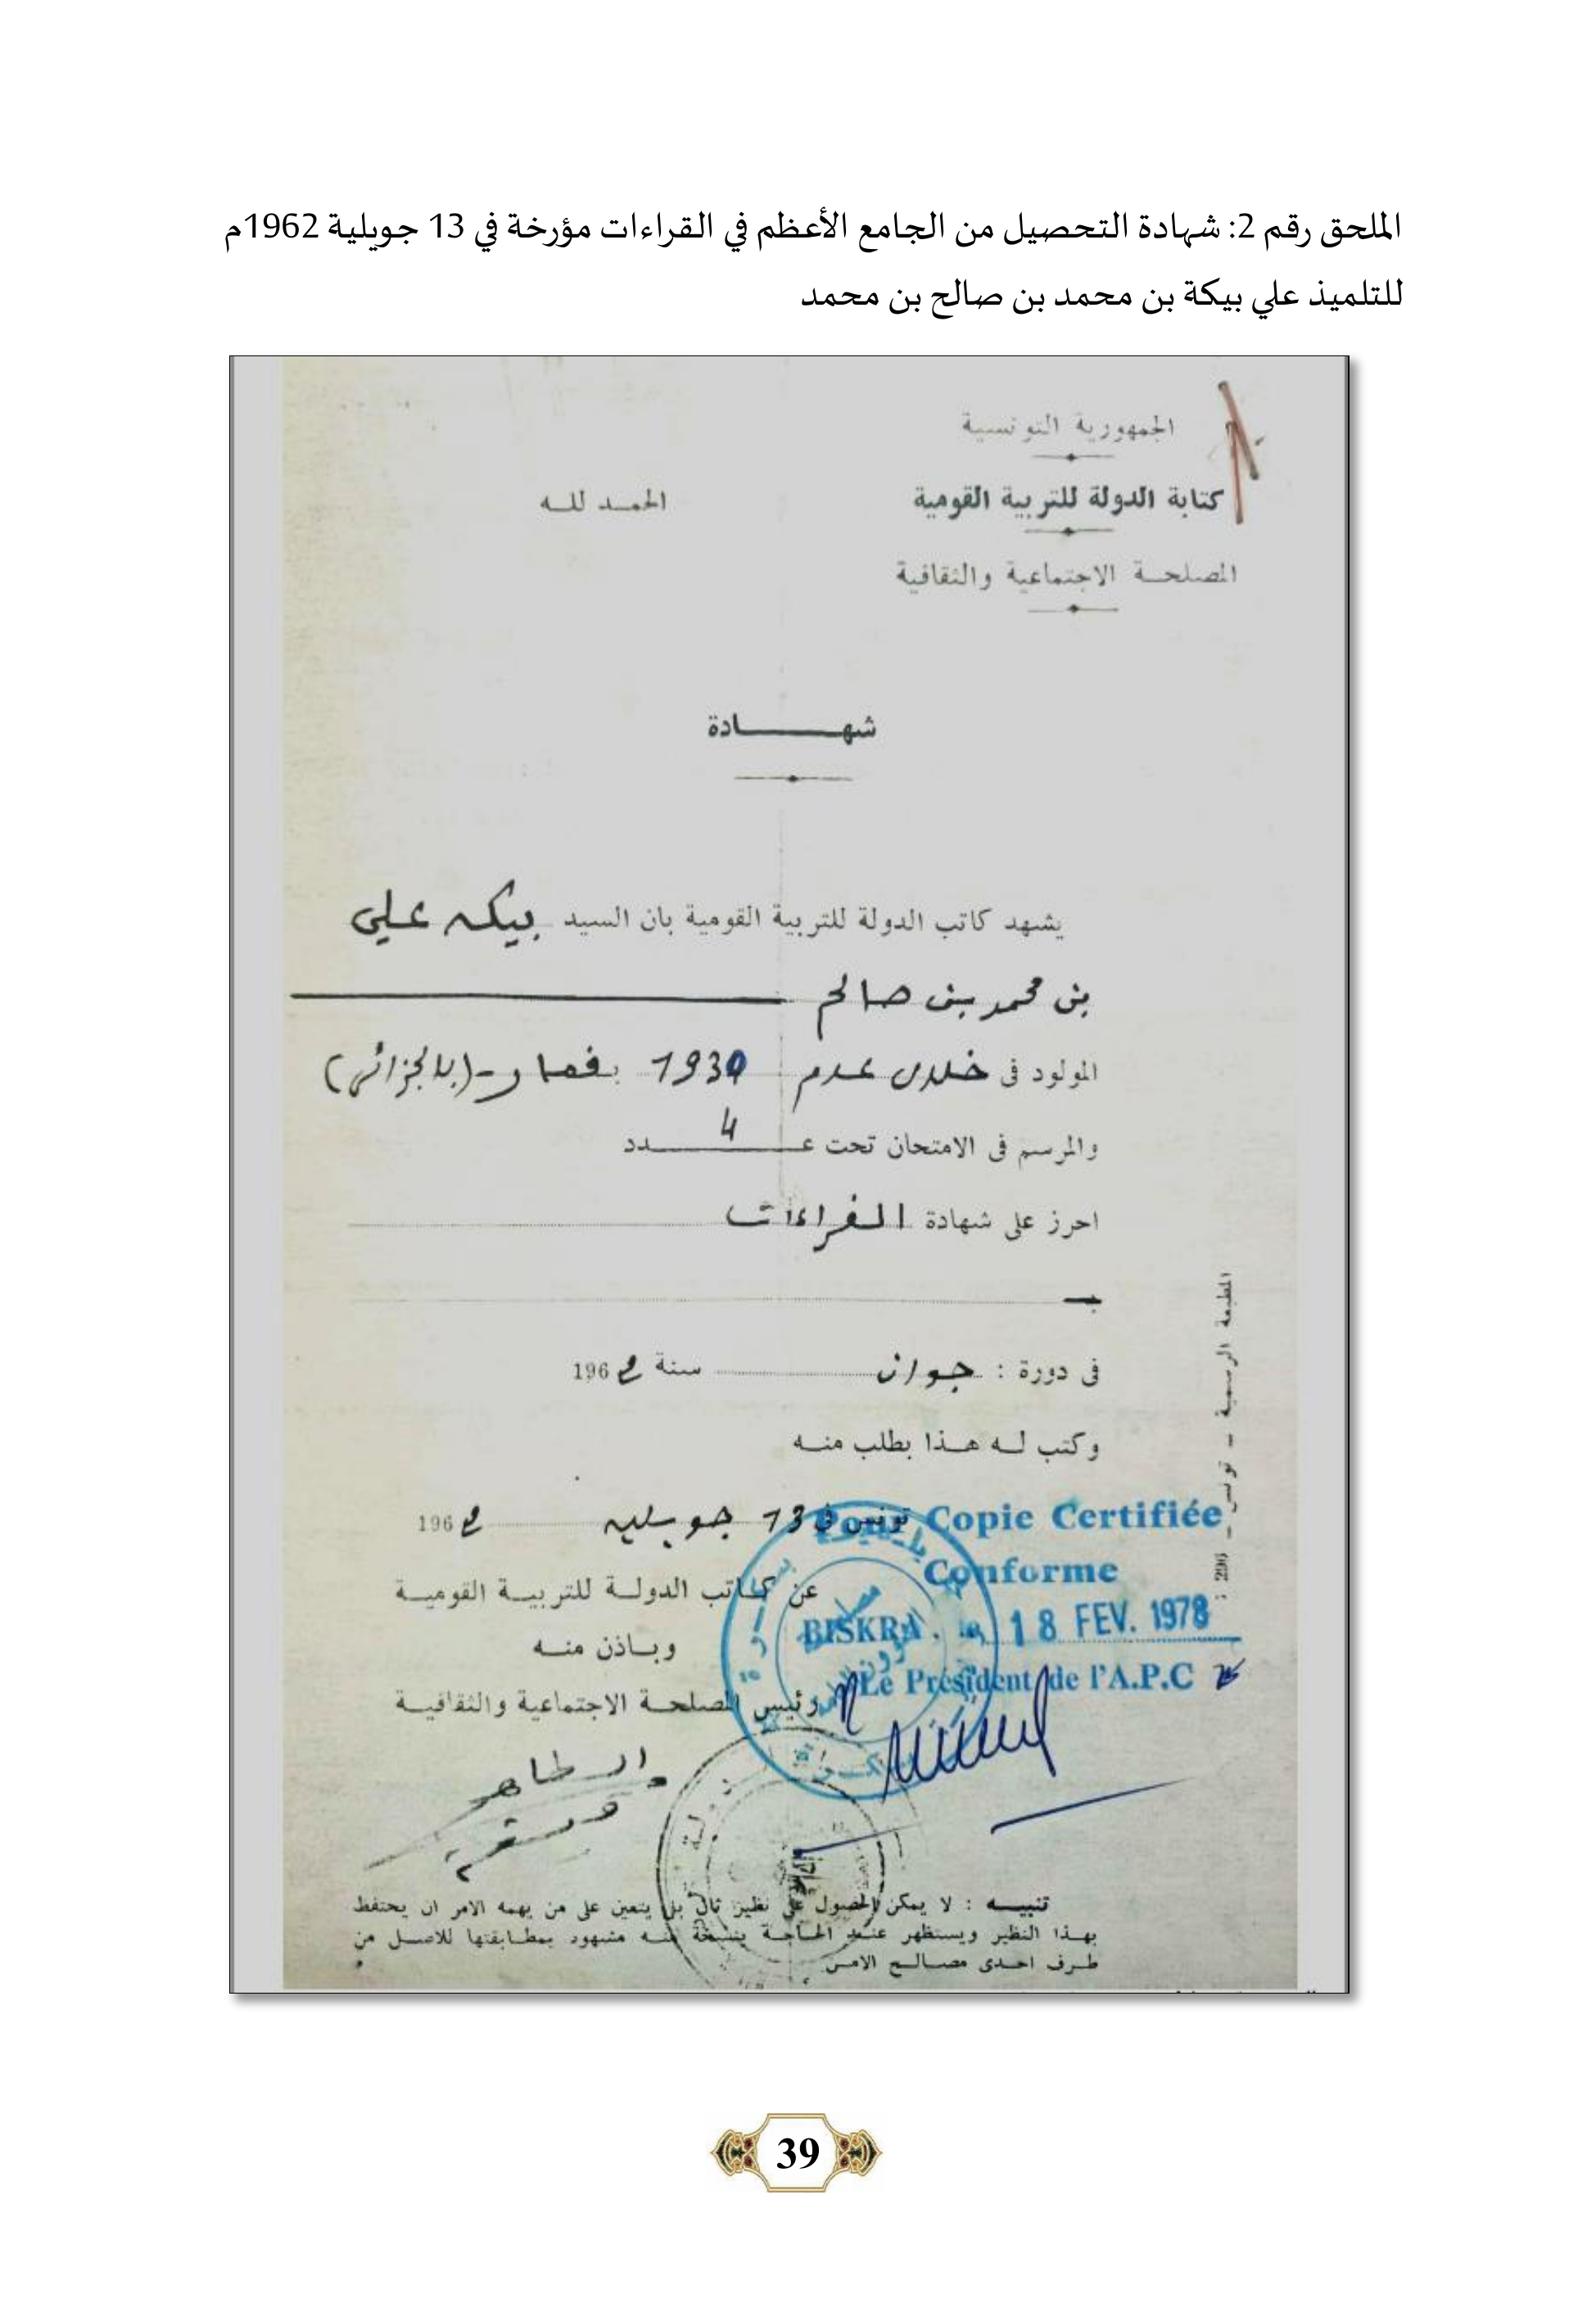 الملحق رقم 2: شهادة التحصيل من الجامع الأعظم في القراءات مؤرخة في 13 جويلية 1962م
للتلميذ علي بيكة بن محمد بن صالح بن محمد
الجمهورية التونسية
كتابة الدولة للتربية القومية
الحمد لله
المصلحة الاجتماعية والثقافية
شهادة
يشهد كاتب الدولة للتربية القومية بان السيد بيكه علي
بن محمد بن صالح
المولود في خلال عام 1930 بقمار - (بالجزائر)
والمرسم في الامتحان تحت عدد 4
احرز على شهادة القراءات
في دورة : جوان سنة 1962
وكتب له هذا بطلب منه
تونس في 13 جويليه 1962
عن كاتب الدولة للتربية القومية
وباذن منه
ورئيس المصلحة الاجتماعية والثقافية
Pour Copie Certifiée
Conforme
BISKRA, le 18 FEV. 1978
Le Président de l'A.P.C
تنبيه : لا يمكن الحصول على نظير ثان بل يتعين على من يهمه الامر ان يحتفظ
بهذا النظير ويستظهر عند الحاجة بنسخة منه مشهود بمطابقتها للاصل من
طرف احدى مصالح الامن
المطبعة الرسمية - تونس - 296
39